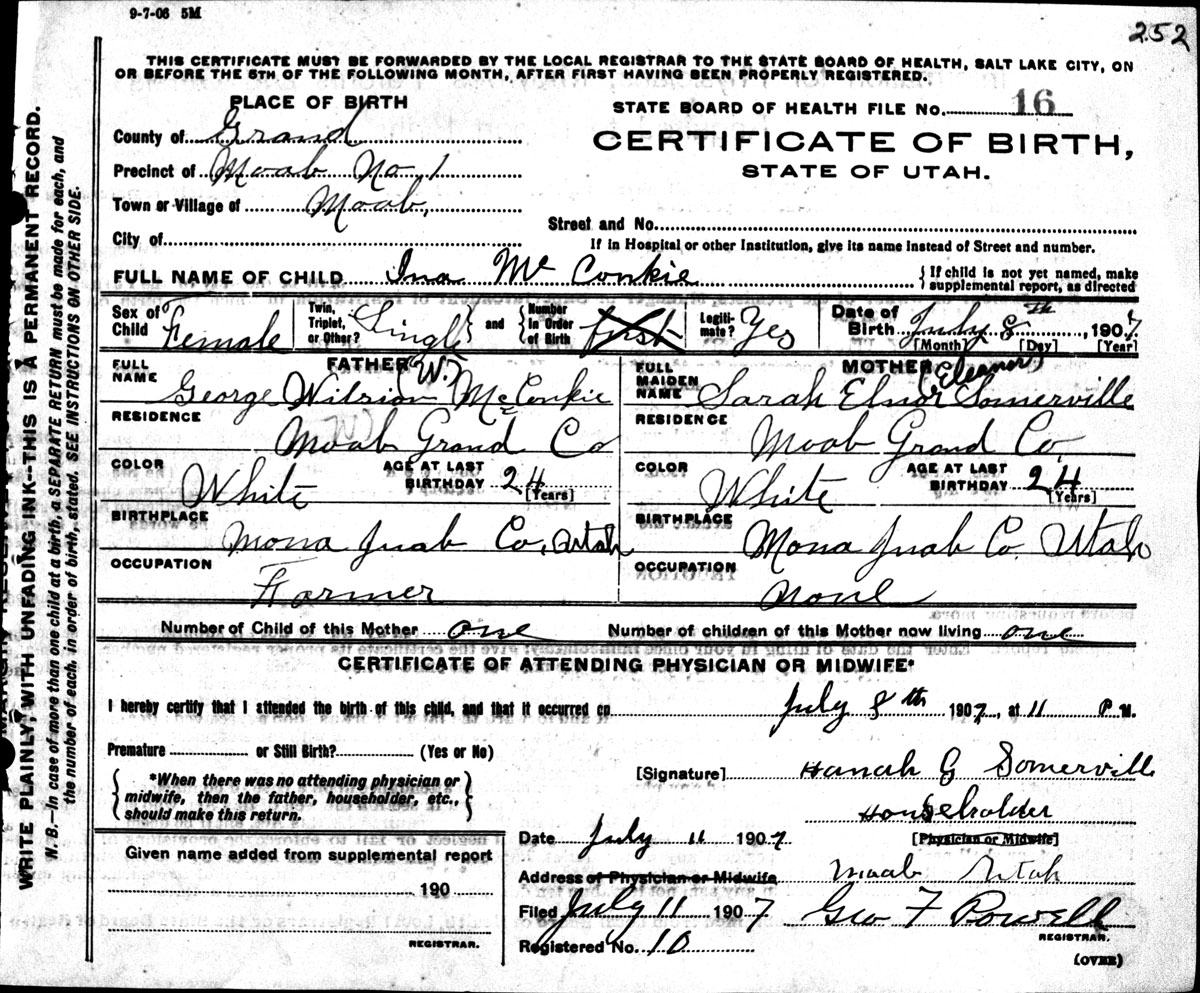 9-7-06 5M
252
THIS CERTIFICATE MUST BE FORWARDED BY THE LOCAL REGISTRAR TO THE STATE BOARD OF HEALTH, SALT LAKE CITY, ON
OR BEFORE THE 5TH OF THE FOLLOWING MONTH, AFTER FIRST HAVING BEEN PROPERLY REGISTERED.
PLACE OF BIRTH
STATE BOARD OF HEALTH FILE No. 16
County of Grand
CERTIFICATE OF BIRTH,
Precinct of Moab No. 1
STATE OF UTAH.
Town or Village of Moab,
Street and No.
City of
If in Hospital or other Institution, give its name instead of Street and number.
FULL NAME OF CHILD Ina McConkie
{If child is not yet named, make
supplemental report, as directed
Sex of Child Female
Twin, Triplet, or Other? Single
and {Number in Order of Birth first
Legiti-mate? Yes
Date of Birth July 8th, 1907
[Month] [Day] [Year]
FATHER
FULL NAME George Wilsion (W.) McConkie
RESIDENCE
Moab Grand Co
COLOR White
AGE AT LAST BIRTHDAY 24 [Years]
BIRTHPLACE
Mona Juab Co. Utah
OCCUPATION
Farmer
MOTHER
FULL MAIDEN NAME Sarah Elnor (Eleanor) Somerville
RESIDENCE
Moab Grand Co.
COLOR White
AGE AT LAST BIRTHDAY 24 [Years]
BIRTHPLACE
Mona Juab Co. Utah
OCCUPATION
None
Number of Child of this Mother one Number of children of this Mother now living one
CERTIFICATE OF ATTENDING PHYSICIAN OR MIDWIFE*
I hereby certify that I attended the birth of this child, and that it occurred on July 8th 1907, at 11 P. M.
Premature or Still Birth? (Yes or No)
{*When there was no attending physician or
midwife, then the father, householder, etc.,
should make this return.}
[Signature] Hanah G Somerville
Householder
[Physician or Midwife]
Date July 11 1907
Address of Physician or Midwife Moab Utah
Given name added from supplemental report
190
REGISTRAR.
Filed July 11 1907 Geo F Powell
REGISTRAR.
Registered No. 10
(OVER)
WRITE PLAINLY, WITH UNFADING INK--THIS IS A PERMANENT RECORD.
N. B.--In case of more than one child at a birth, a SEPARATE RETURN must be made for each, and
the number of each, in order of birth, stated. SEE INSTRUCTIONS ON OTHER SIDE.